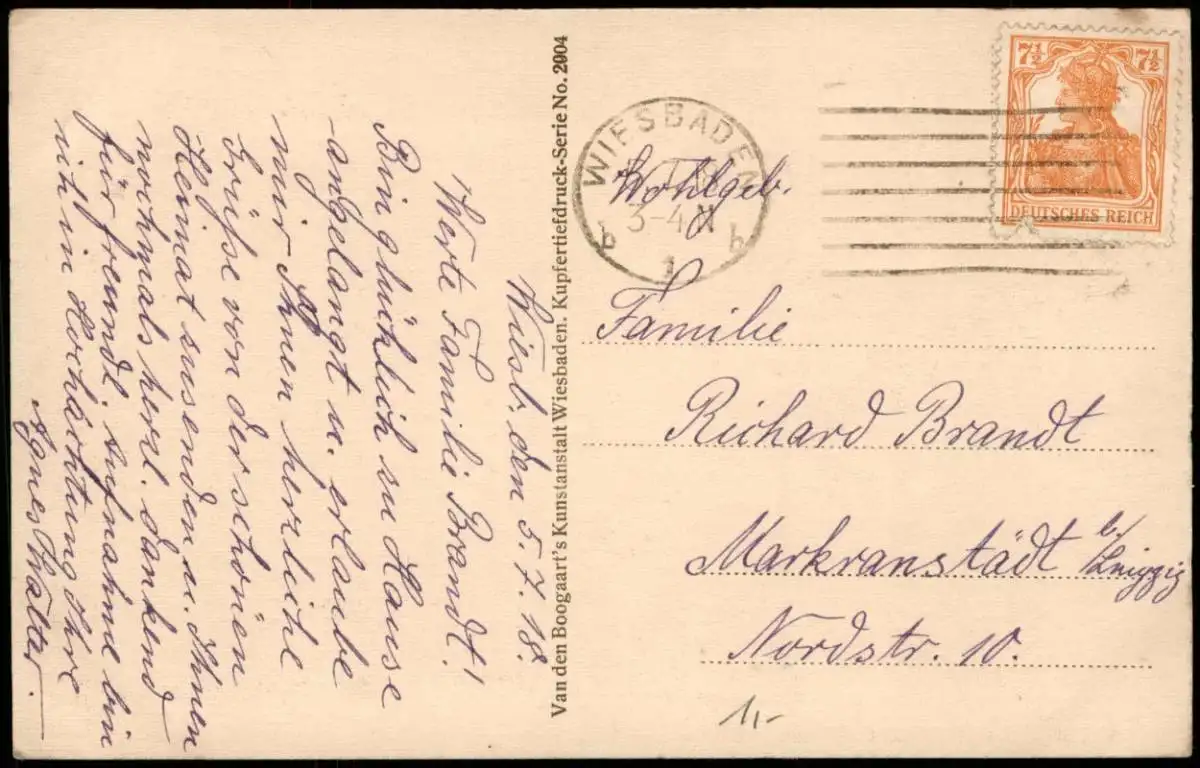 Wiesb. den 5.7.18.
Werte Familie Brandt!
Bin glücklich zu Hause
angelangt u. erlaube
mir Ihnen herzliche
Grüße von der schönen
Heimat zusenden u. Ihnen
nochmals herzl. dankend
für freundl. Aufnahme bin
ich in Hochachtung Ihre
Agnes Thalter.
Van den Boogaart's Kunstanstalt Wiesbaden. Kupfertiefdruck-Serie No. 2904
WIESBADEN
3-4 N
b 1 b
7½ 7½
DEUTSCHES REICH
Wohlgeb.
Familie
Richard Brandt
Markranstädt b/Leipzig
Nordstr. 10.
1,-